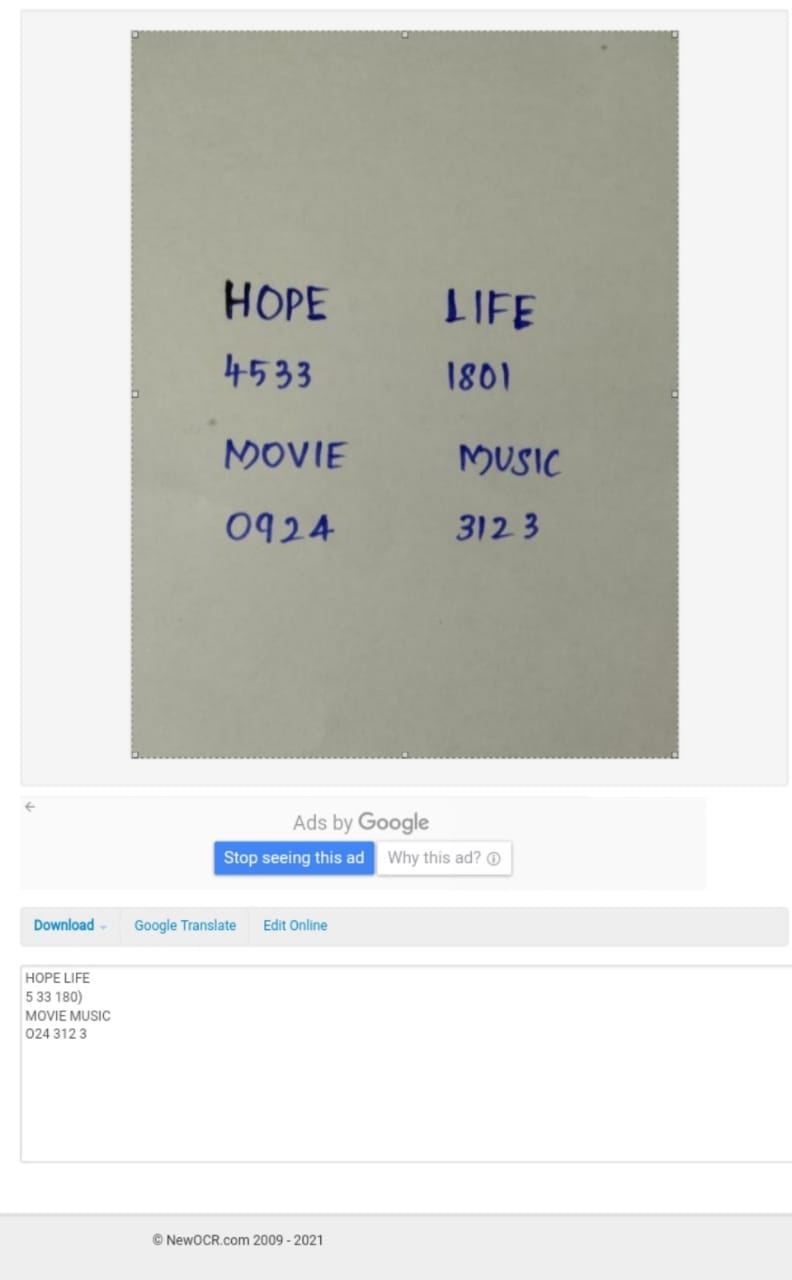 HOPE LIFE
4533 1801
MOVIE MUSIC
0924 312 3
Ads by Google
Stop seeing this ad Why this ad?
Download Google Translate Edit Online
HOPE LIFE
5 33 180)
MOVIE MUSIC
O24 312 3
© NewOCR.com 2009 - 2021